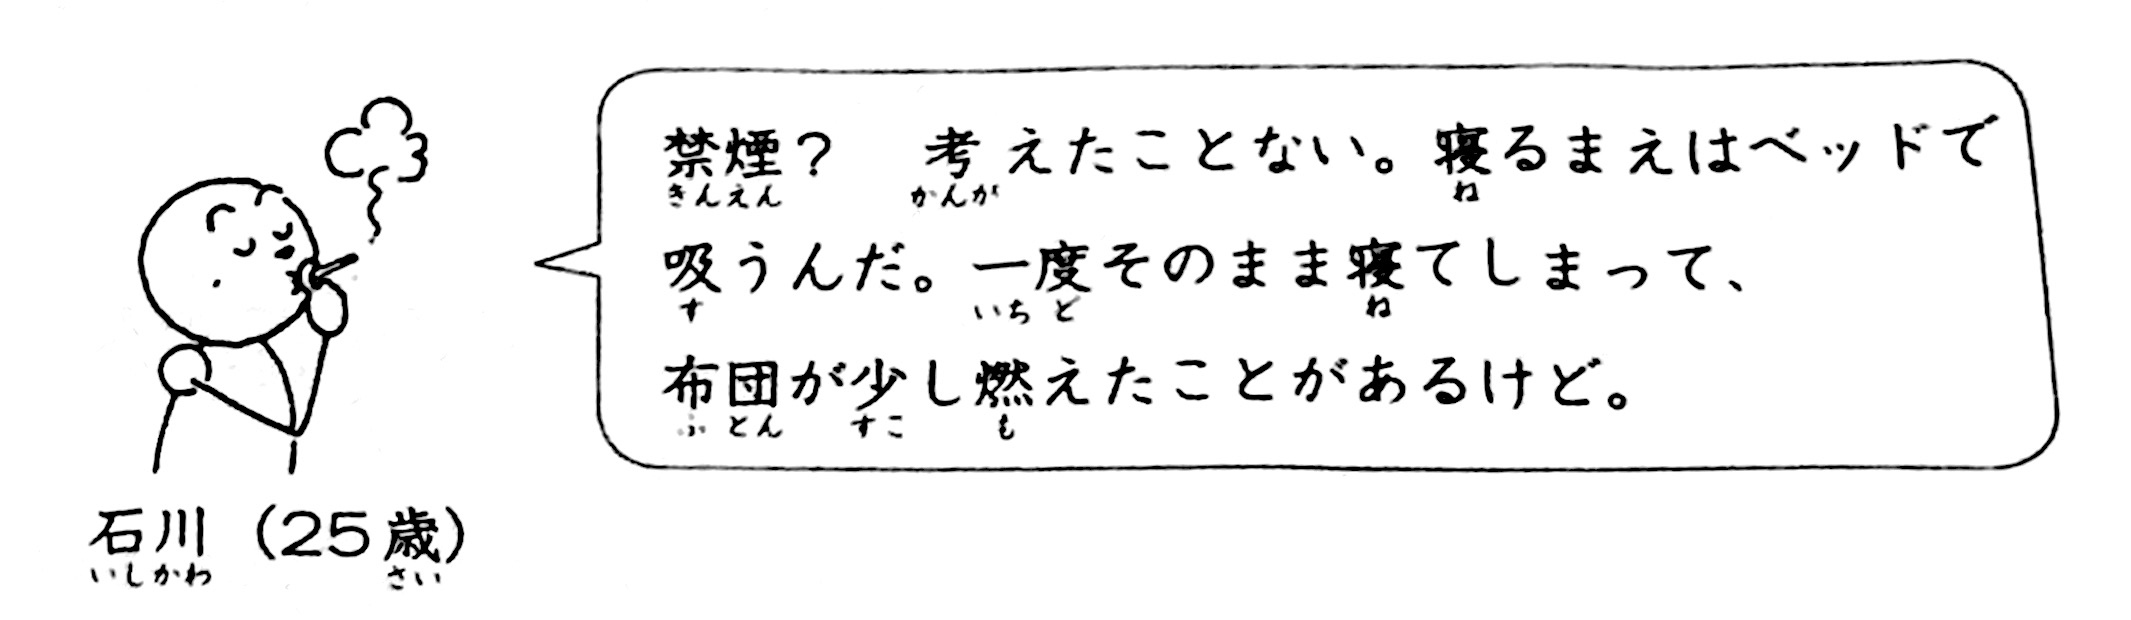 禁煙？　考えたことない。寝るまえはベッドで
きんえん　かんが　ね
吸うんだ。一度そのまま寝てしまって、
す　いちど　ね
布団が少し燃えたことがあるけど。
ふとん　すこ　も
石川（25歳）
いしかわ　さい